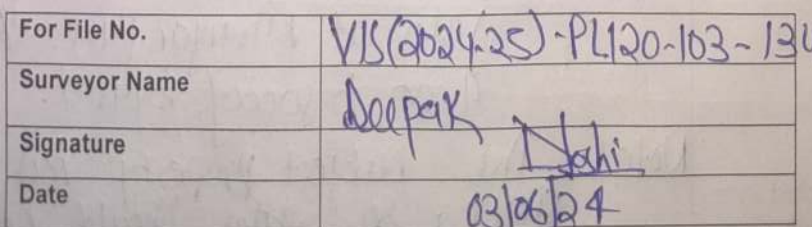 For File No. VIS(2024-25)-PL120-103-134
Surveyor Name Deepak
Signature Joshi
Date 03/06/24